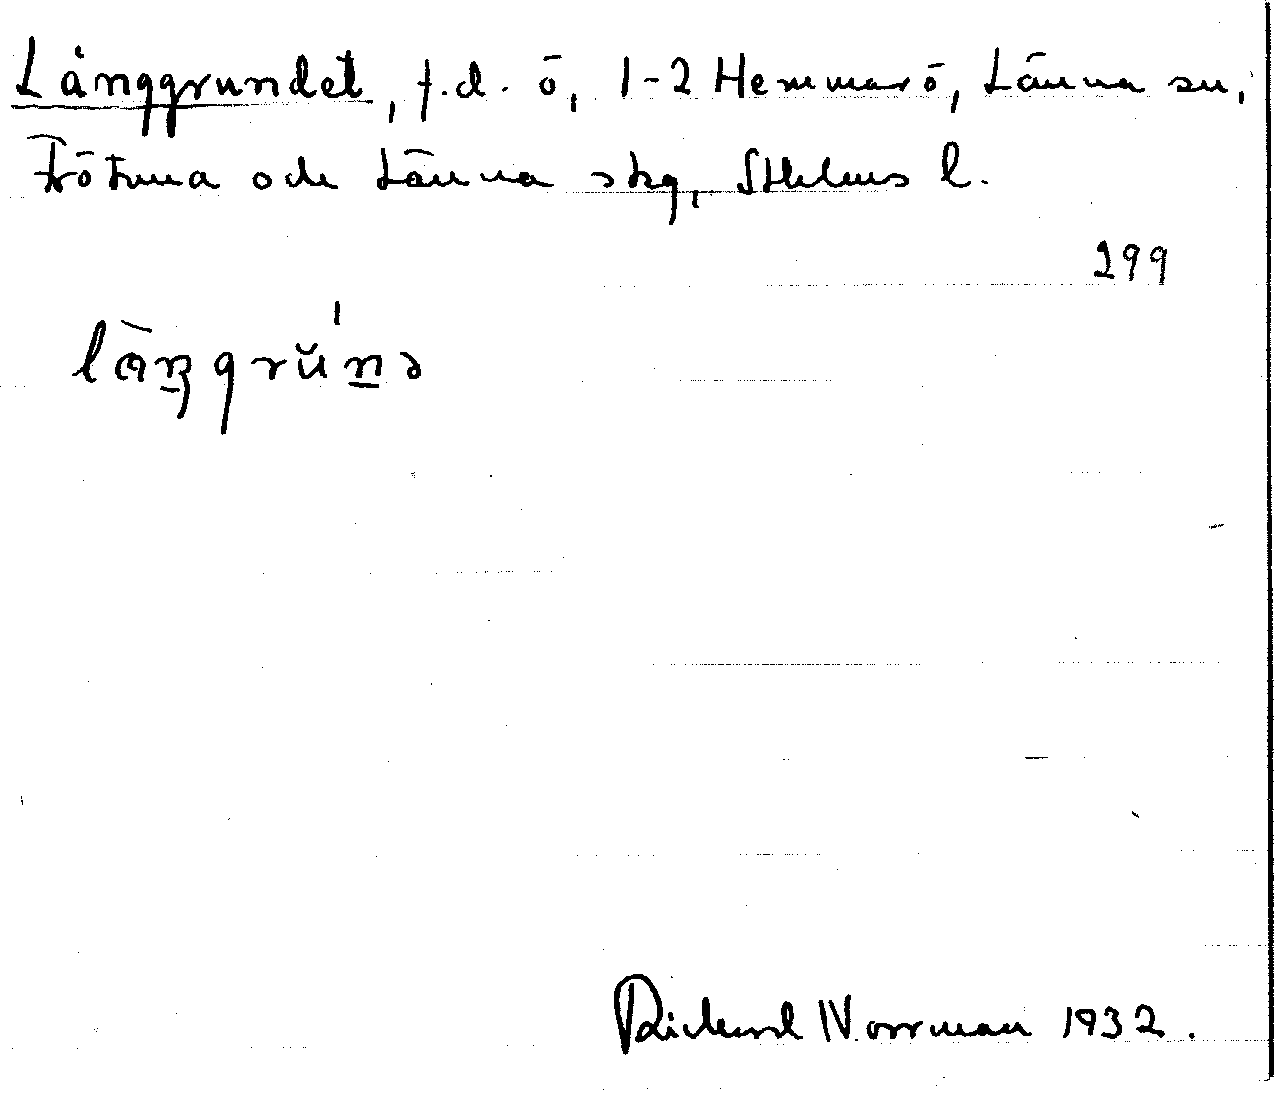 Långgrundet, f.d. ö, 1-2 Hemmarö, Länna sn,
Frötuna och Länna skg, Sthlms l.
299
låŋgrŭ́nə
Richard Norrman 1932.